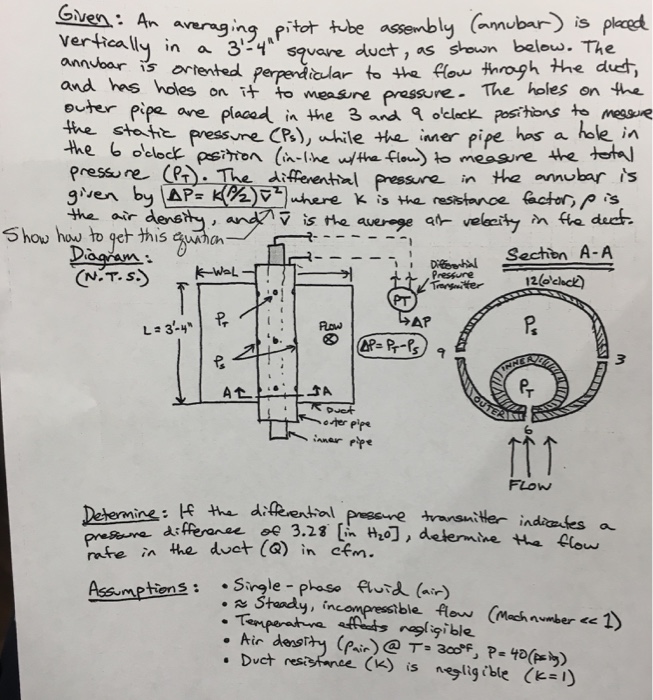 Given: An averaging pitot tube assembly (annubar) is placed
vertically in a 3'-4" square duct, as shown below. The
annubar is oriented perpendicular to the flow through the duct,
and has holes on it to measure pressure. The holes on the
outer pipe are placed in the 3 and 9 o'clock positions to measure
the static pressure (Ps), while the inner pipe has a hole in
the 6 o'clock position (in-line w/the flow) to measure the total
pressure (PT). The differential pressure in the annubar is
given by ΔP= K(ρ/2)V̄² where K is the resistance factor, ρ is
the air density, and V̄ is the average air velocity in the duct.
Show how to get this equation
Diagram:
(N.T.S.)
W=L
L = 3'-4"
PT
Ps
FLOW
A
A
Duct
outer pipe
inner pipe
Differential
Pressure
Transmitter
PT
ΔP
ΔP= PT-Ps
Section A-A
12 (o'clock)
Ps
9
3
INNER
PT
OUTER
6
FLOW
Determine: If the differential pressure transmitter indicates a
pressure difference of 3.28 [in H₂O], determine the flow
rate in the duct (Q) in cfm.
Assumptions: • Single-phase fluid (air)
• ≈ Steady, incompressible flow (Mach number << 1)
• Temperature effects negligible
• Air density (ρair) @ T= 300°F, P= 40 (psig)
• Duct resistance (K) is negligible (K=1)